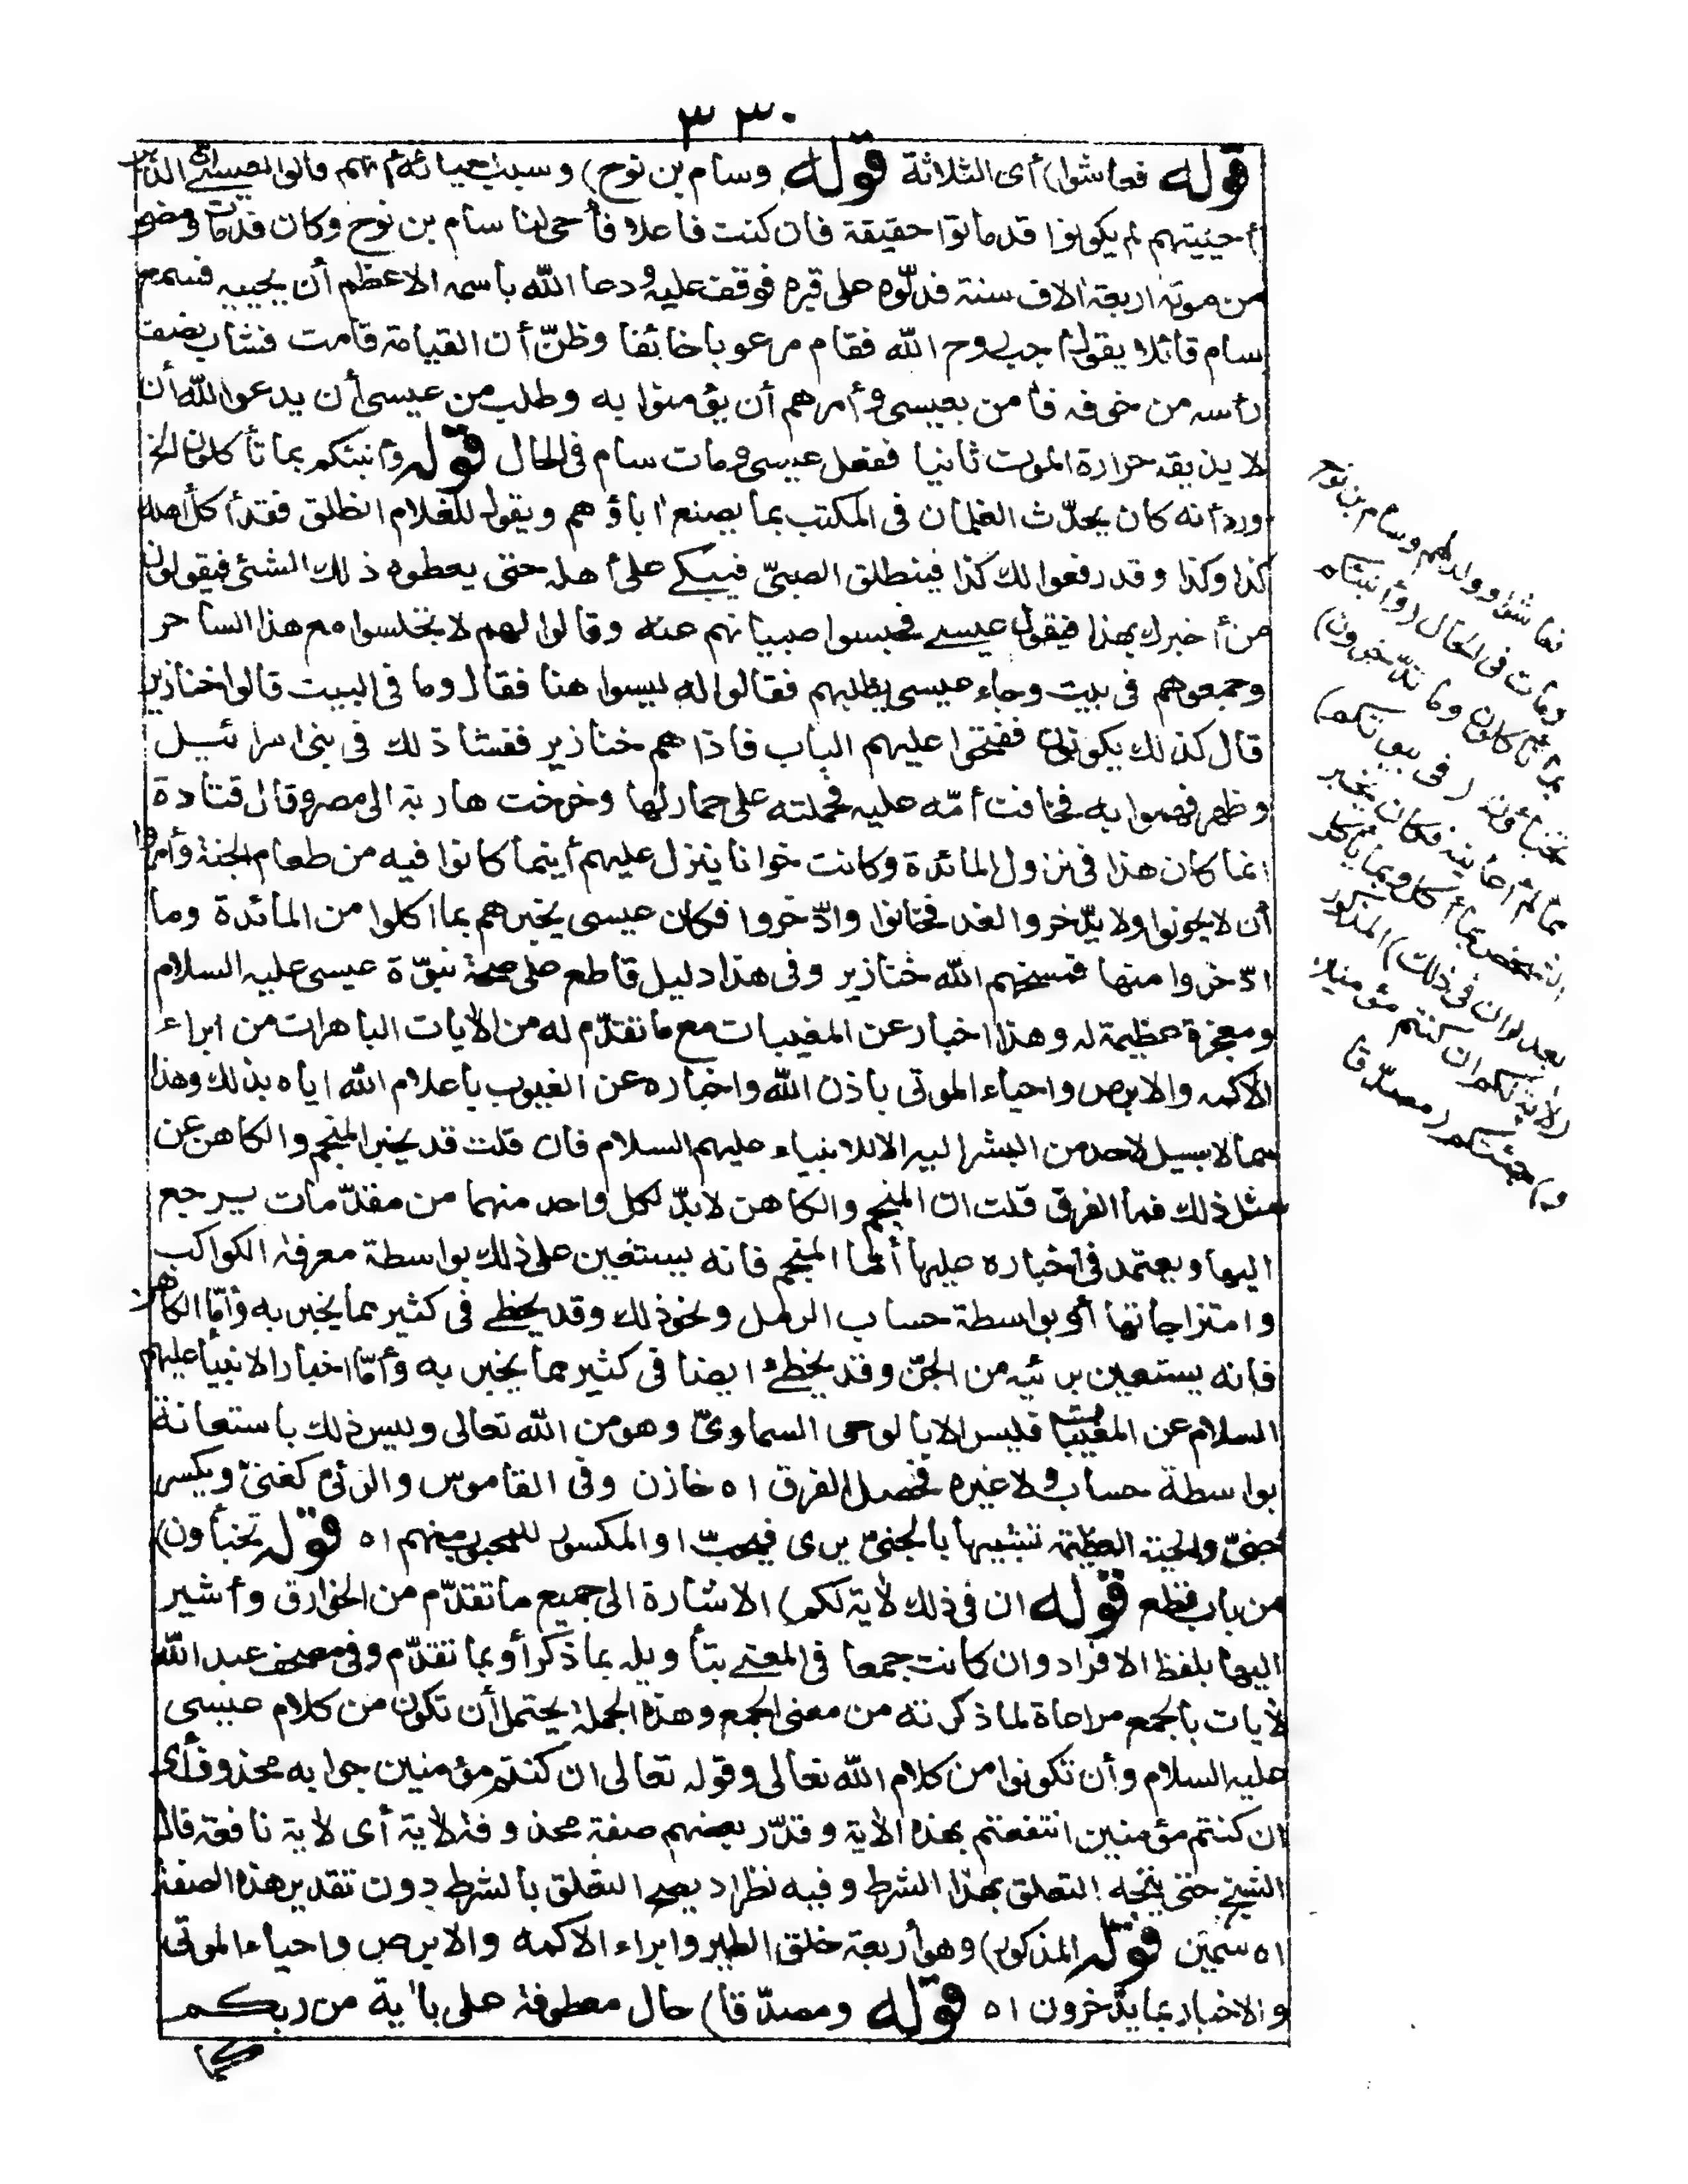 ٣٣٠
قوله فعاشوا) أى الثلاثة قوله وسام بن نوح) وسبب حياته أنهم قالوا لعيسى ان الذين
أحييتهم لم يكونوا قد ماتوا حقيقة فان كنت فاعلا فأحى لنا سام بن نوح وكان قد مات ومضى
من موته اربعة الاف سنة فدلّوه على قبره فوقف عليه ودعا الله باسمه الاعظم أن يحييه فسمع
سام قائلا يقول أجب روح الله فقام مرعوبا خائفا وظنّ أن القيامة قامت فشاب نصف
رأسه من خوفه فآمن بعيسى وأمرهم أن يؤمنوا به وطلب من عيسى أن يدعو الله أن
لا يذيقه حرارة الموت ثانيا ففعل عيسى ومات سام فى الحال قوله وأنبئكم بما تأكلون الخ
ورد أنه كان يحدّث الغلمان فى المكتب بما يصنع اباؤهم ويقول للغلام انطلق فقد أكل أهلك
كذا وكذا وقد رفعوا لك كذا فينطلق الصبىّ فيبكى على أهله حتى يعطوه ذلك الشئ فيقولون
من أخبرك بهذا فيقول عيسى فحبسوا صبيانهم عنه وقالوا لهم لا تجلسوا مع هذا الساحر
وجمعوهم فى بيت وجاء عيسى يطلبهم فقالوا له ليسوا هنا فقال وما فى البيت قالوا خنازير
قال كذلك يكونون ففتحوا عليهم الباب فاذا هم خنازير ففشا ذلك فى بنى اسرائيل
وظهر فهموا به فخافت أمّه عليه فحملته على حمار لها وخرجت هاربة الى مصر وقال قتادة
انما كان هذا فى نزول المائدة وكانت خوانا ينزل عليهم أينما كانوا فيه من طعام الجنة وأمروا
أن لا يخونوا ولا يدّخروا لغد فخانوا وادّخروا فكان عيسى يخبرهم بما اكلوا من المائدة وما
ادّخروا منها فمسخهم الله خنازير وفى هذا دليل قاطع على صحة نبوّة عيسى عليه السلام
ومعجزة عظيمة له وهذا اخبار عن المغيبات مع ما تقدّم له من الآيات الباهرات من ابراء
الاكمه والابرص واحياء الموتى باذن الله واخباره عن الغيوب باعلام الله اياه بذلك وهذا
مما لا سبيل لاحد من البشر اليه الا للانبياء عليهم السلام فان قلت قد يخبر المنجم والكاهن عن
مثل ذلك فما الفرق قلت ان المنجم والكاهن لابدّ لكل واحد منهما من مقدّمات يرجع
اليها ويعتمد فى اخباره عليها أما المنجم فانه يستعين على ذلك بواسطة معرفة الكواكب
وامتزاجاتها أو بواسطة حساب الرمل ونحو ذلك وقد يخطئ فى كثير مما يخبر به وأمّا الكاهن
فانه يستعين برئيه من الجنّ وقد يخطئ ايضا فى كثير مما يخبر به وأمّا اخبار الانبياء عليهم
السلام عن المغيبات فليس الا بالوحى السماوىّ وهو من الله تعالى وليس ذلك باستعانة
بواسطة حساب ولا غيره فحصل الفرق اه خازن وفى القاموس والرئى كغنىّ ويكسر
جنىّ والحية العظيمة تشبيها بالجنىّ يرى فيحبّ او المكسور للمحبوب منهم اه قوله تخبأون)
من باب قطع قوله ان فى ذلك لآية لكم) الاشارة الى جميع ما تقدّم من الخوارق وأشير
اليها بلفظ الافراد وان كانت جمعا فى المعنى بتأويله بما ذكر أو بما تقدّم وفى مصحف عبد الله
لآيات بالجمع مراعاة لما ذكرته من معنى الجمع وهذه الجملة يحتمل أن تكون من كلام عيسى
عليه السلام وأن تكونوا من كلام الله تعالى وقوله تعالى ان كنتم مؤمنين جوابه محذوف أى
ان كنتم مؤمنين انتفعتم بهذه الآية وقدّر بعضهم صفة محذوفة لآية أى لآية نافعة قال
الشيخ حتى يتجه التعلق بهذا الشرط وفيه نظر اذ يصح التعلق بالشرط دون تقدير هذه الصفة
اه سمين قوله المذكور) وهو أربعة خلق الطير وابراء الاكمه والابرص واحياء الموتى
والاخبار بما يدّخرون اه قوله ومصدّقا) حال معطوفة على بآية من ربكم
فعاشوا وولد لهم وسام بن نوح
ومات فى الحال (وأنبئكم
بما تأكلون وما تدّخرون)
تخبأون (فى بيوتكم)
مما لم أعاينه فكان يخبر
الشخص بما أكل وبما يأكل
بعد (ان فى ذلك) المذكور
(لآية لكم ان كنتم مؤمنين
و) جئتكم (مصدّقا